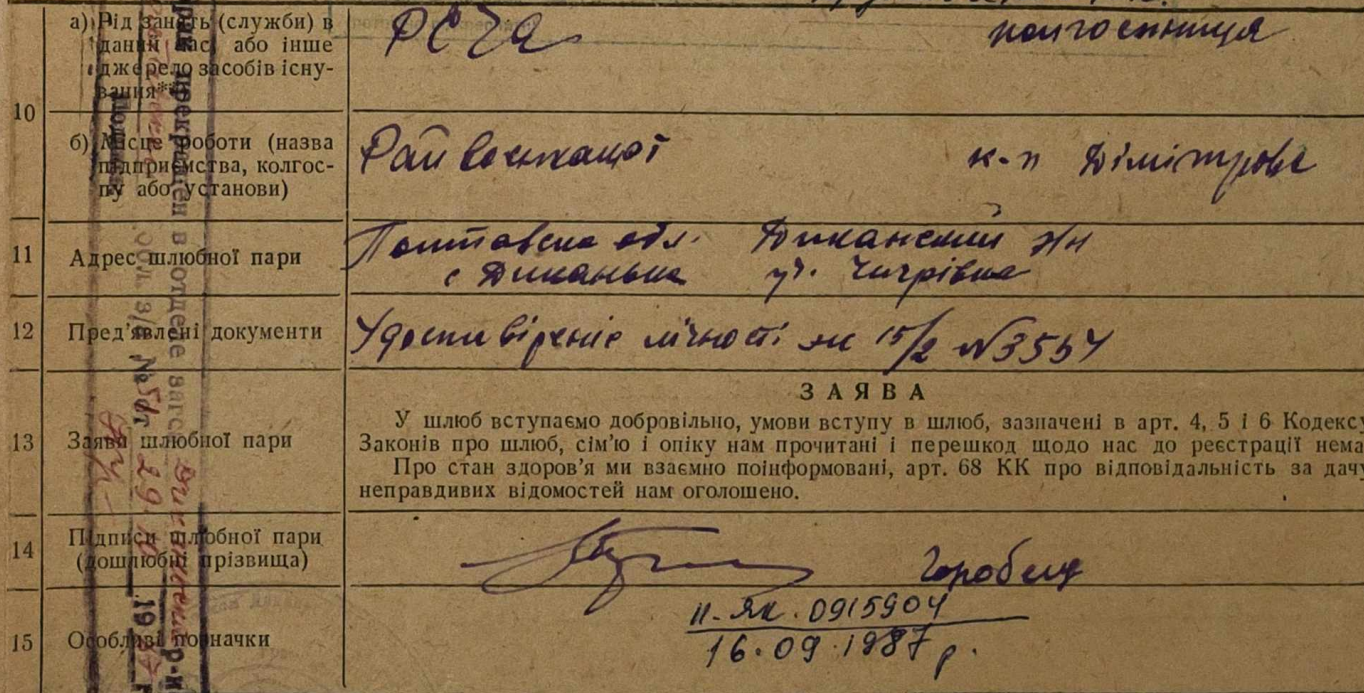 а) Рід занять (служби) в
даний час, або інше
джерело засобів існу-
вання**)
РСЧА
колгоспниця
10
б) Місце роботи (назва
підприємства, колгос-
пу або установи)
Райвоєнкомат
к-п Дімітрова
11
Адрес шлюбної пари
Полтавська обл. Диканский р-н
с Диканька ул. Чигрівка
12
Пред'явлені документи
Удоствірение лічності
№3557
13
Заява шлюбної пари
ЗАЯВА
У шлюб вступаємо добровільно, умови вступу в шлюб, зазначені в арт. 4, 5 і 6 Кодексу
Законів про шлюб, сім'ю і опіку нам прочитані і перешкод щодо нас до реєстрації нема
Про стан здоров'я ми взаємно поінформовані, арт. 68 КК про відповідальність за дачу
неправдивих відомостей нам оголошено.
14
Підписи шлюбної пари
(дошлюбні прізвища)
Горобець
15
Особливі позначки
II-ЯК. 0915904
16.09.1987 р.
Брак прекращен в отделе загс Диканський р-н
№ 51 от 29.10 19